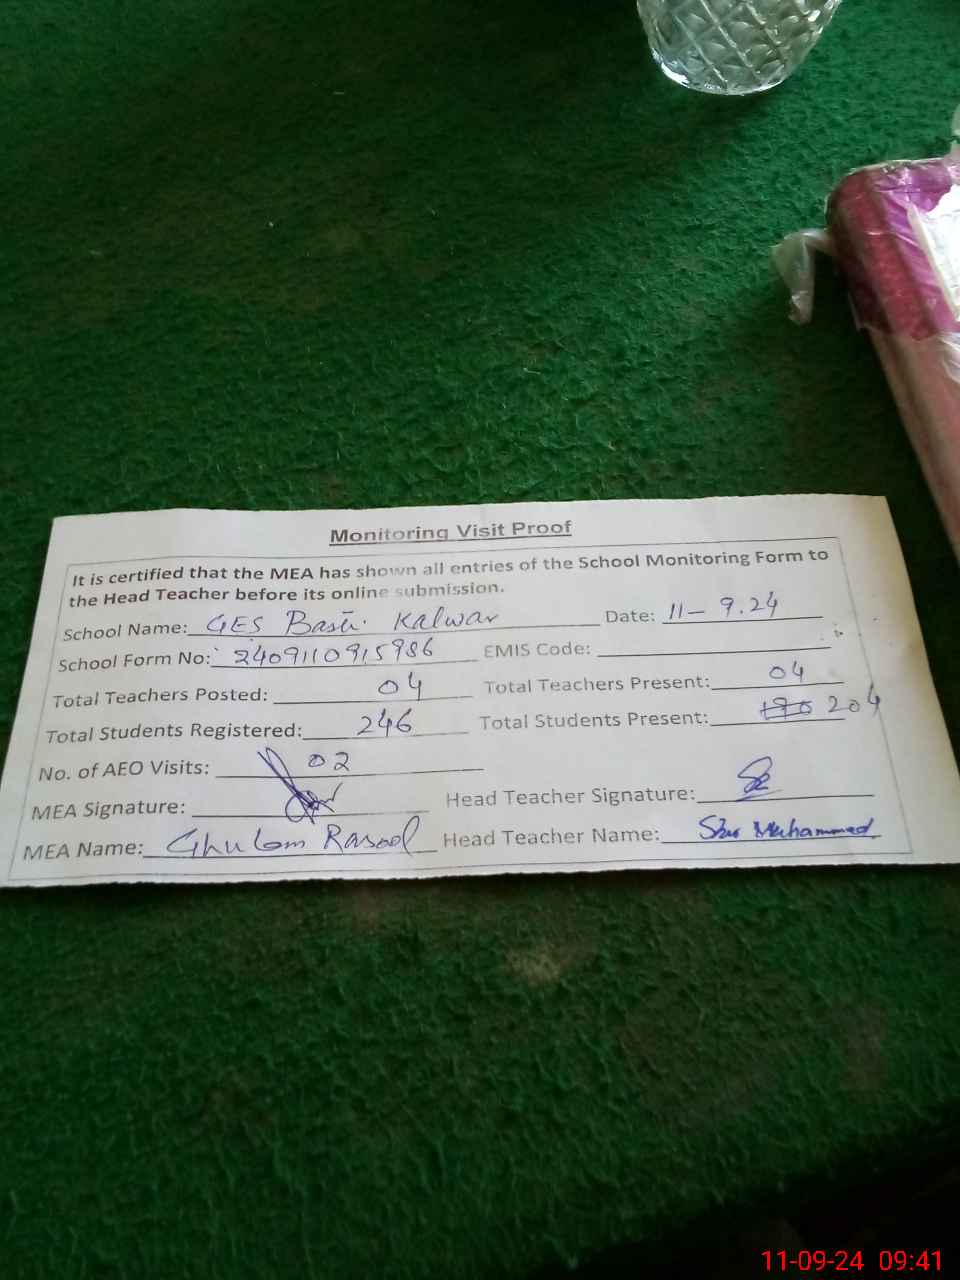 Monitoring Visit Proof
It is certified that the MEA has shown all entries of the School Monitoring Form to
the Head Teacher before its online submission.
School Name: GES Basti Kalwar Date: 11-9.24
School Form No: 2409110915986 EMIS Code:
Total Teachers Posted: 04 Total Teachers Present: 04
Total Students Registered: 246 Total Students Present: 190 204
No. of AEO Visits: 02
MEA Signature: Head Teacher Signature:
MEA Name: Ghulam Rasool Head Teacher Name: Muhammad
11-09-24 09:41